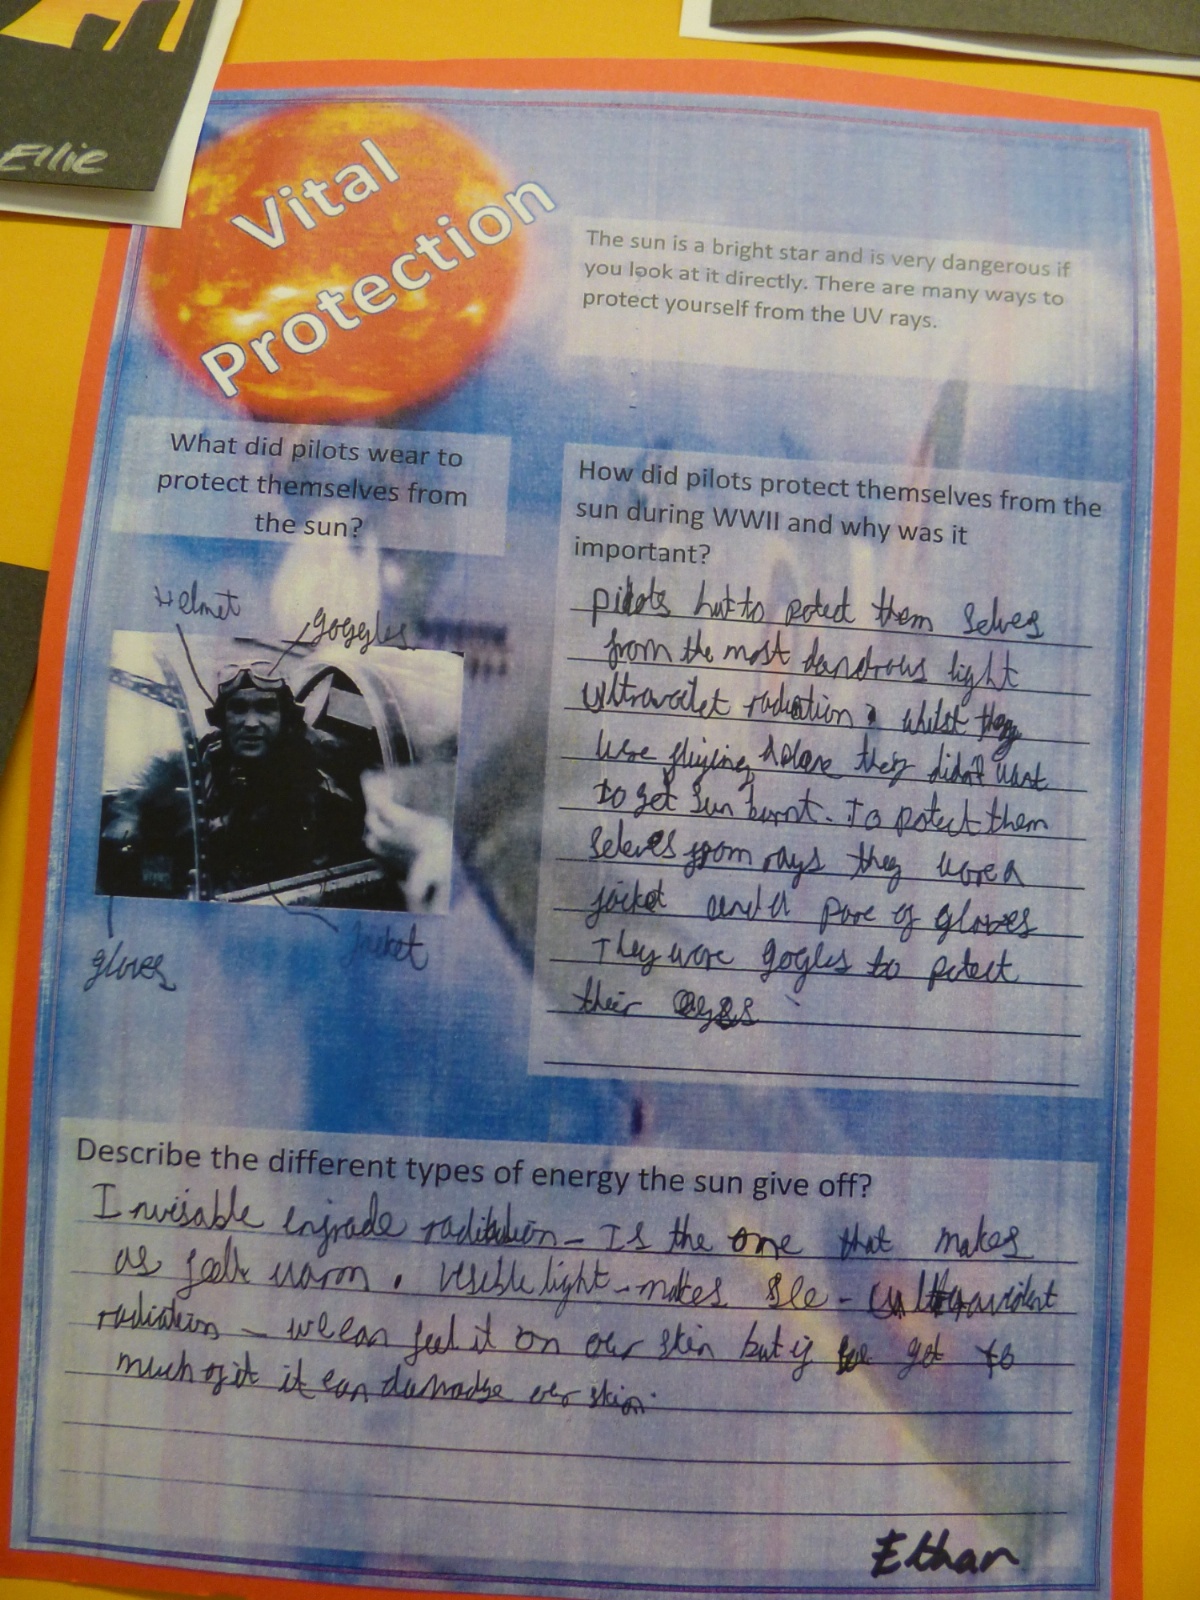 Ellie
Vital
Protection
The sun is a bright star and is very dangerous if
you look at it directly. There are many ways to
protect yourself from the UV rays.
What did pilots wear to
protect themselves from
the sun?
Helmet
goggles
gloves
Jacket
How did pilots protect themselves from the
sun during WWII and why was it
important?
pilots hut to potect them selves
from the most dandrous light
radiation. whilst they
were fliying a plane they didn't want
to get sun burnt. To potect them
seleves from rays they wore a
jacket and a pare of gloves
They wore gogles to potect
their eyes
Describe the different types of energy the sun give off?
Invisable radiation - Is the one that makes
as feel warm. light - makes see -
radiation - we can feel it on our skin but if we get to
much of it it can our skin.
Ethan